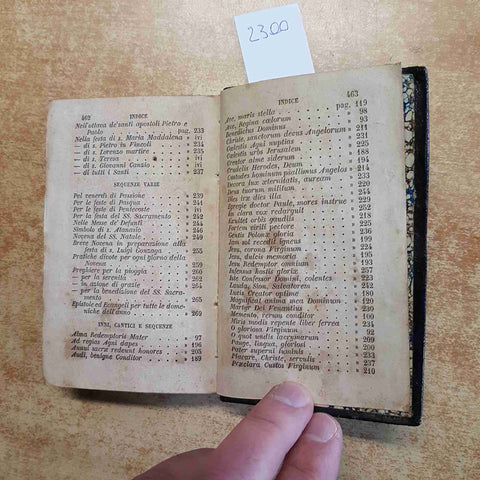 2300
462 INDICE
Nell'ottava de' santi apostoli Pietro e
Paolo pag. 233
Nella festa di s. Maria Maddalena ivi
— di s. Pietro in Vincoli 234
— di s. Lorenzo martire 235
— di s. Teresa ivi
— di s. Giovanni Canzio ivi
— di tutti i Santi 237
SEQUENZE VARIE
Pel venerdì di Passione 239
Per le feste di Pasqua 244
Per le feste di Pentecoste ivi
Per la festa del SS. Sagramento 242
Nelle Messe de' Defunti 244
Simbolo di s. Atanasio 246
Novena del SS. Natale 249
Breve Novena in preparazione alla
festa di s. Luigi Gonzaga 255
Pratiche divote per ogni giorno della
Novena 259
Preghiere per la pioggia
— per la serenità 262
— in azione di grazie 264
— per la benedizione del SS. Sacra-
mento 265
Epistole ed Evangeli per tutte le dome-
niche dell'anno 269
INNI, CANTICI E SEQUENZE
Alma Redemptoris Mater 97
Ad regias Agni dapes 197
Annui sacre redeunt honores 205
Audi, benigne Conditor 189
INDICE 463
Ave, maris stella pag. 119
Ave, Regina cælorum 98
Benedictus Dominus 93
Christe, sanctorum decus Angelorum 211
Cælestis Agni nuptias 231
Cælestis urbs Jerusalem 225
Creator alme siderum 188
Crudelis Herodes, Deum 194
Custodes hominum psallimus Angelos 214
Decora lux æternitatis, auream 233
Deus tuorum militum
Dies iræ dies illa 244
Egregie doctor Paule, mores instrue
In clara vox redarguit 187
Exultet orbis gaudiis
Fortem virili pectore
Gentis Polonæ gloria
Iam sol recedit igneus
Jesu, corona Virginum 224
Jesu, dulcis memoria
Jesu Redemptor omnium 193
Infensus hostis gloriæ
Iste Confessor Domini, colentes 223
Lauda, Sion, Salvatorem 242
Lucis Creator optime 180
Magnificat anima mea Dominum
Martyr Dei Venantius
Memento, rerum conditor
Miris modis repente liber ferrea 234
O gloriosa Virginum 92
O quot undis lacrymarum
Pange, lingua, gloriosi 200
Pater superni luminis
Placare, Christe, servulis 237
Præclara Custos Virginum 210